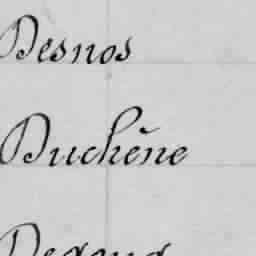 Desnos
Duchêne